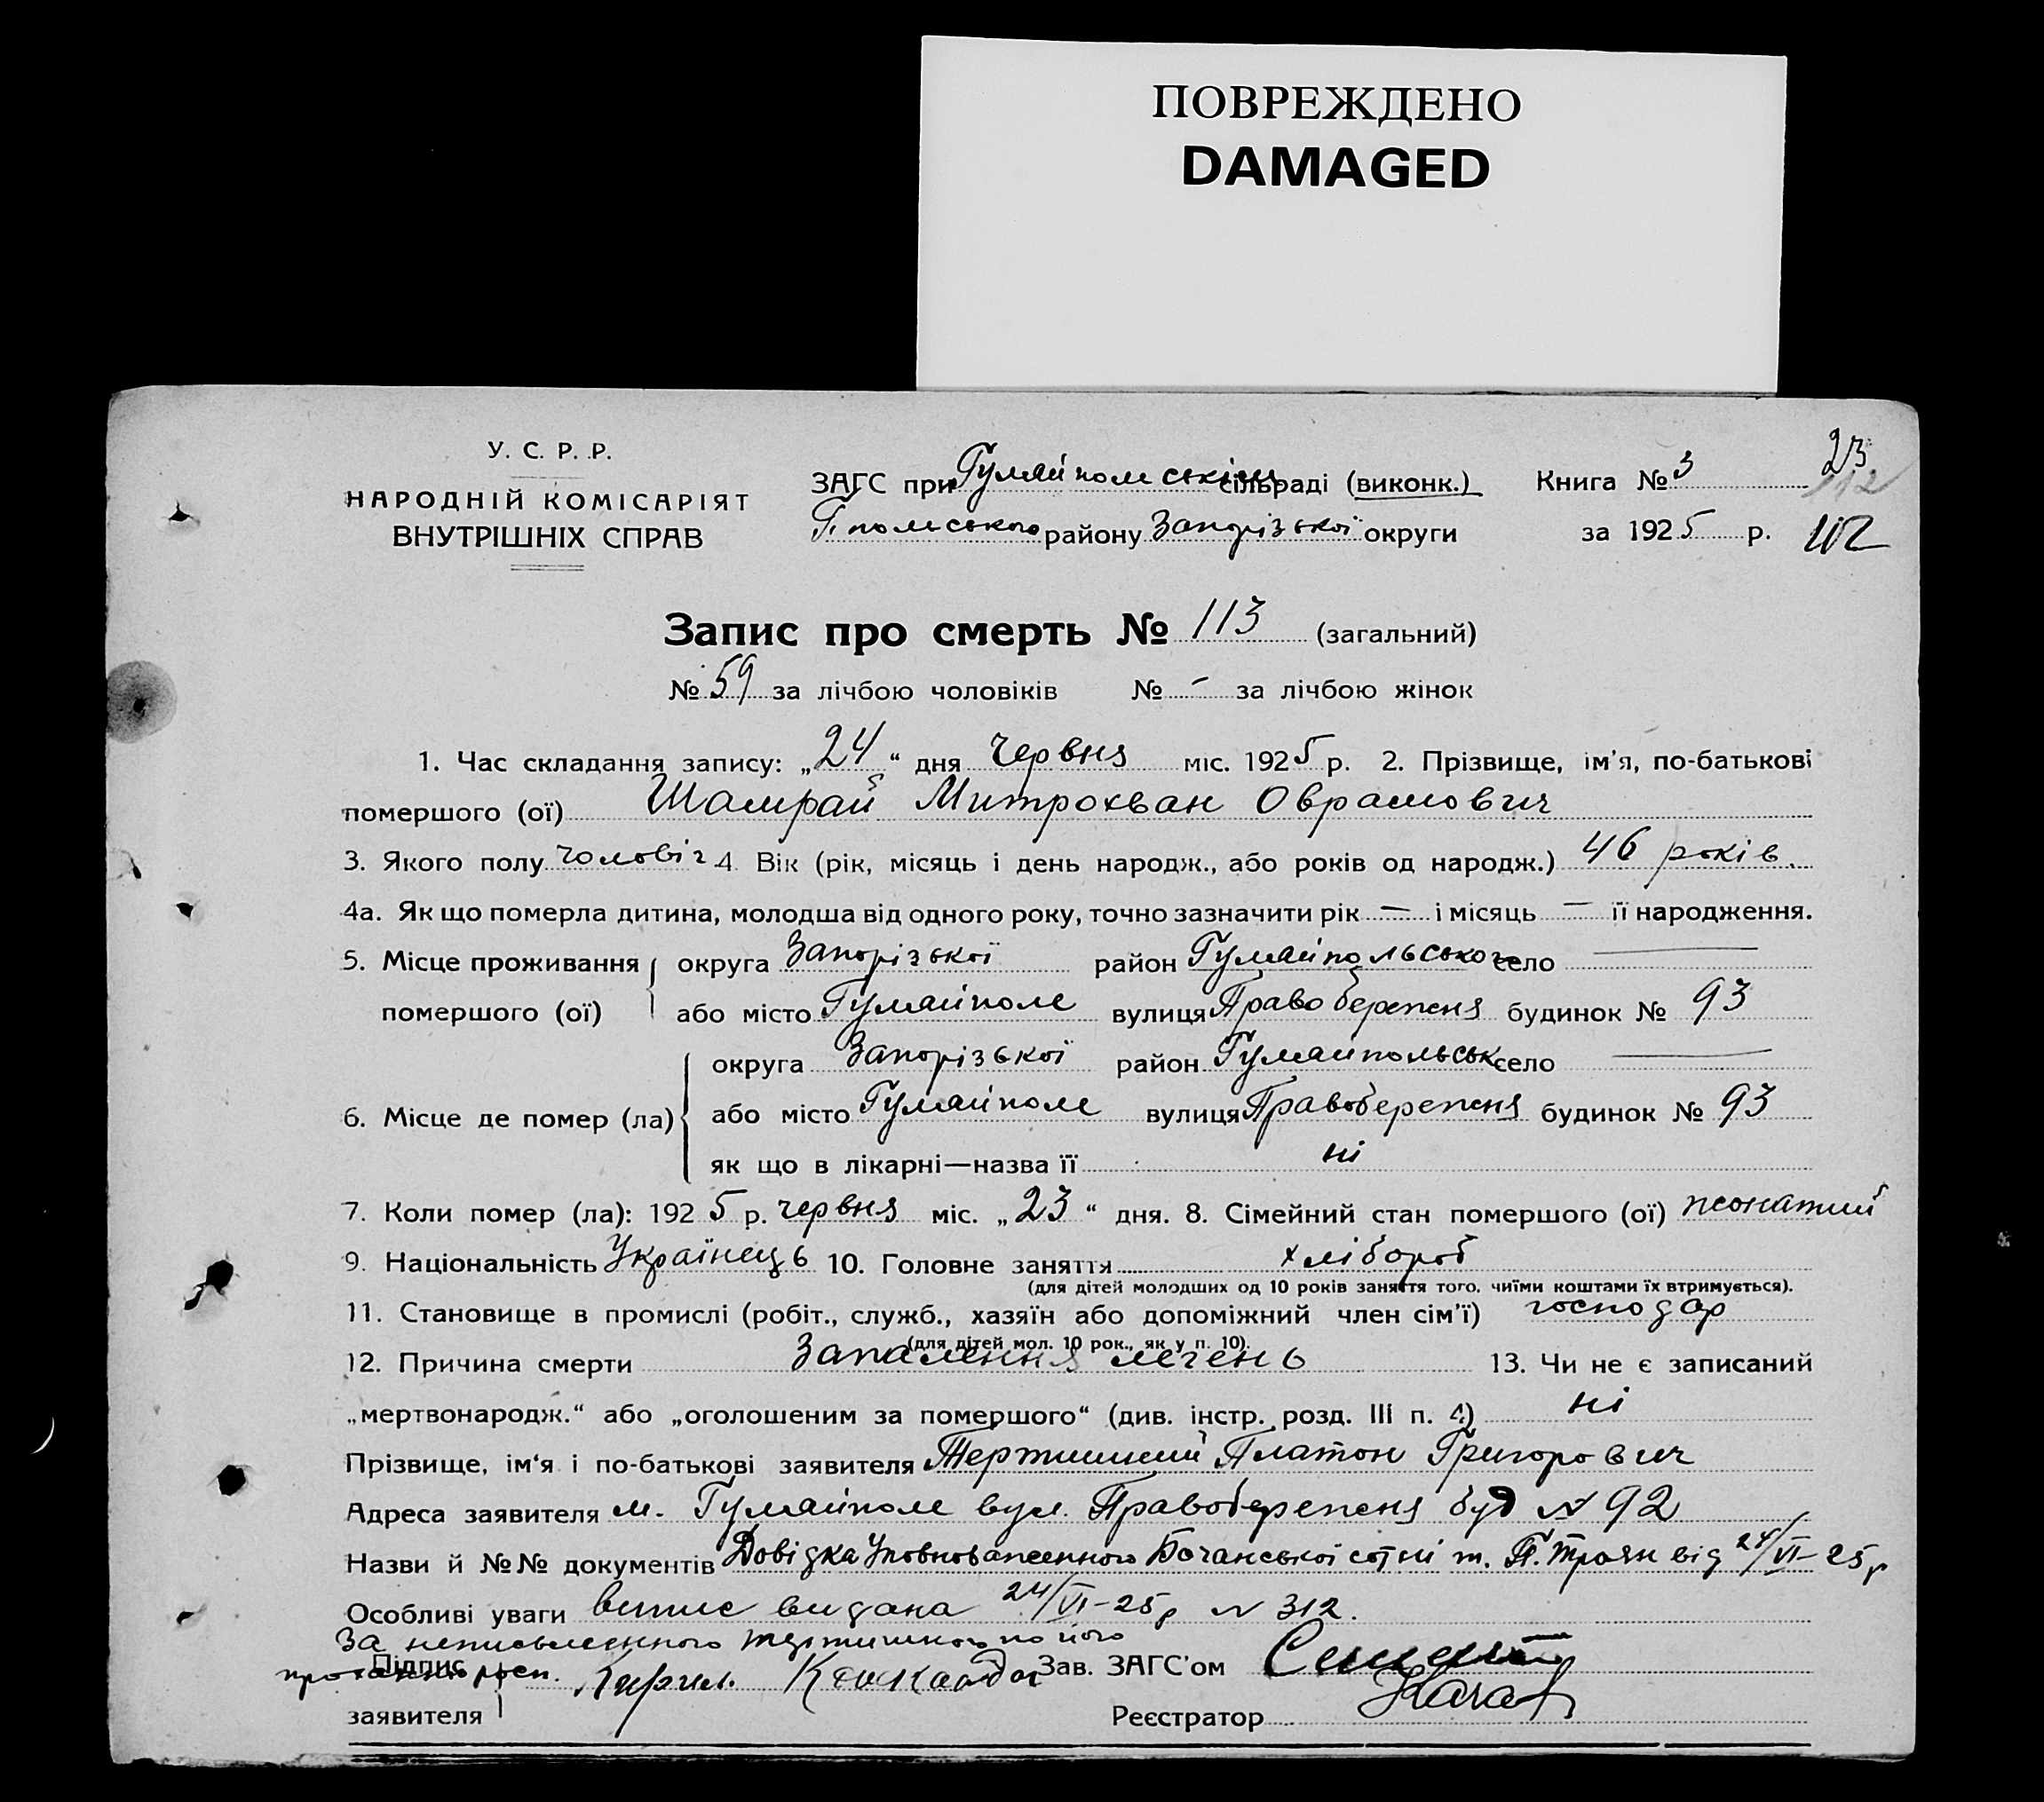 ПОВРЕЖДЕНО
DAMAGED
У. С. Р. Р.
НАРОДНІЙ КОМІСАРІЯТ
ВНУТРІШНІХ СПРАВ
ЗАГС при Гуляйпольським сільраді (виконк.)
Г. польського району Запорізької округи
Книга № 3
за 1925 р.
23
112
112
Запис про смерть № 113 (загальний)
№ 59 за лічбою чоловіків № - за лічбою жінок
1. Час складання запису: „24“ дня червня міс. 1925 р. 2. Прізвище, ім'я, по-батькові
помершого (ої) Шамрай Митрохван Оврамович
3. Якого полу чоловіч 4. Вік (рік, місяць і день народж., або років од народж.) 46 років.
4а. Як що померла дитина, молодша від одного року, точно зазначити рік — і місяць — її народження.
5. Місце проживання помершого (ої) округа Запорізької район Гуляйпольського село —
або місто Гуляйполе вулиця Правобережня будинок № 93
6. Місце де помер (ла) округа Запорізької район Гуляйпольськ село —
або місто Гуляйполе вулиця Правобережня будинок № 93
як що в лікарні—назва її ні
7. Коли помер (ла): 1925 р. червня міс. „23“ дня. 8. Сімейний стан помершого (ої) жонатий
9. Національність Українець 10. Головне заняття хлібороб
(для дітей молодших од 10 років заняття того, чиїми коштами їх втримується).
11. Становище в промислі (робіт., служб., хазяїн або допоміжний член сім'ї) господар
(для дітей мол. 10 рок., як у п. 10).
12. Причина смерти Запалення легень 13. Чи не є записаний
„мертвонародж.“ або „оголошеним за помершого“ (див. інстр. розд. III п. 4) ні
Прізвище, ім‘я і по-батькові заявителя Тертишний Платон Григорович
Адреса заявителя м. Гуляйполе вул. Правобережня буд № 92
Назви й №№ документів Довідка Уповноваженного Бочанської сотні т. П. Троян від 24/VI-25р
Особливі уваги випис видана 24/VI-25р № 312.
За неписьменного по його
Підпис заявителя
Зав. ЗАГС'ом
Реєстратор